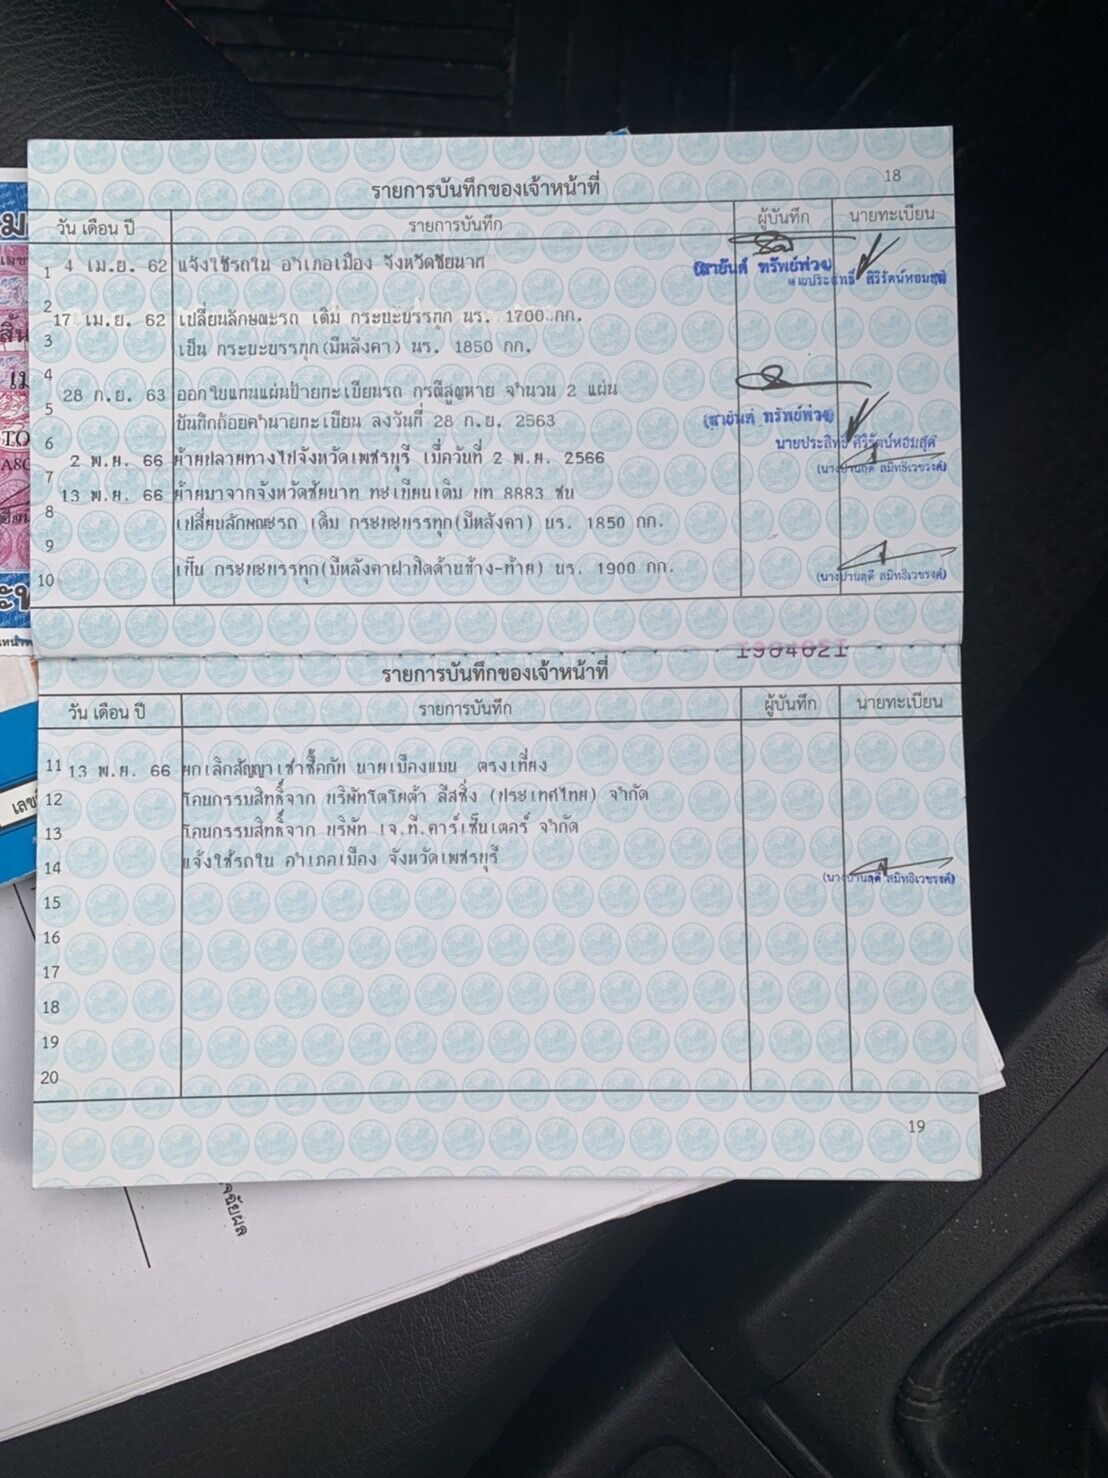 18
รายการบันทึกของเจ้าหน้าที่
วัน เดือน ปี รายการบันทึก ผู้บันทึก นายทะเบียน
1 4 เม.ย. 62 แจ้งใช้รถใน อำเภอเมือง จังหวัดชัยนาท (สายันต์ ทรัพย์พ่วง)
นายประสิทธิ์ ศิริรัตน์หอมสุด
2
17 เม.ย. 62 เปลี่ยนลักษณะรถ เดิม กระบะบรรทุก นร. 1700 กก.
3 เป็น กระบะบรรทุก(มีหลังคา) นร. 1850 กก.
4
28 ก.ย. 63 ออกใบแทนแผ่นป้ายทะเบียนรถ กรณีสูญหาย จำนวน 2 แผ่น
5 บันทึกถ้อยคำนายทะเบียน ลงวันที่ 28 ก.ย. 2563 (สายันต์ ทรัพย์พ่วง)
6 นายประสิทธิ์ ศิริรัตน์หอมสุด
2 พ.ย. 66 ย้ายปลายทางไปจังหวัดเพชรบุรี เมื่อวันที่ 2 พ.ย. 2566 (นางปานฤดี สมิทธิเวชรงค์)
7
13 พ.ย. 66 ย้ายมาจากจังหวัดชัยนาท ทะเบียนเดิม บท 8883 ชน
8 เปลี่ยนลักษณะรถ เดิม กระบะบรรทุก(มีหลังคา) นร. 1850 กก.
9
10 เป็น กระบะบรรทุก(มีหลังคาฝาปิดด้านข้าง-ท้าย) นร. 1900 กก. (นางปานฤดี สมิทธิเวชรงค์)
1904021
รายการบันทึกของเจ้าหน้าที่
วัน เดือน ปี รายการบันทึก ผู้บันทึก นายทะเบียน
11 13 พ.ย. 66 ยกเลิกสัญญาเช่าซื้อกับ นายเมืองแบน ตรงเที่ยง
12 โอนกรรมสิทธิ์จาก บริษัทโตโยต้า ลีสซิ่ง (ประเทศไทย) จำกัด
13 โอนกรรมสิทธิ์จาก บริษัท เจ.ที.คาร์เซ็นเตอร์ จำกัด
14 แจ้งใช้รถใน อำเภอเมือง จังหวัดเพชรบุรี (นางปานฤดี สมิทธิเวชรงค์)
15
16
17
18
19
20
19